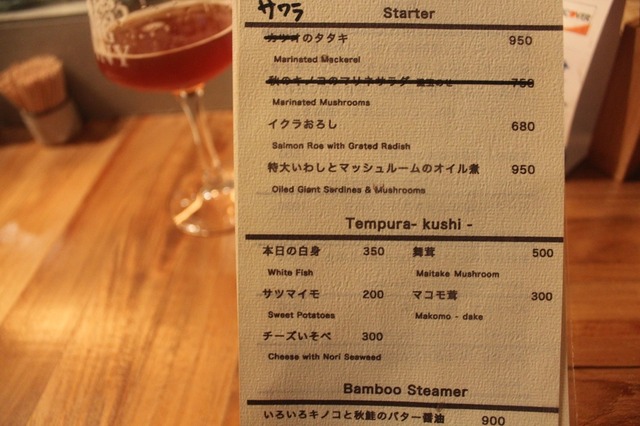 サワラ
Starter
カツオのタタキ 950
Marinated Mackerel
秋のキノコのマリネサラダ 750
Marinated Mushrooms
イクラおろし 680
Salmon Roe with Grated Radish
特大いわしとマッシュルームのオイル煮 950
Oiled Giant Serdines & Mushrooms
Tempura- kushi -
本日の白身 350 舞茸 500
White Fish Maitake Mushroom
サツマイモ 200 マコモ茸 300
Sweet Potatoes Makomo - dake
チーズいそべ 300
Cheese with Nori Seaweed
Bamboo Steamer
いろいろキノコと秋鮭のバター醤油 900